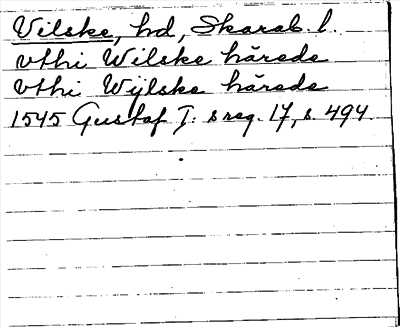 Vilske, hd, Skarab. l.
vthi Wilske härede
vthi Wijlske härede
1545 Gustaf I:s reg. 17, s. 494.